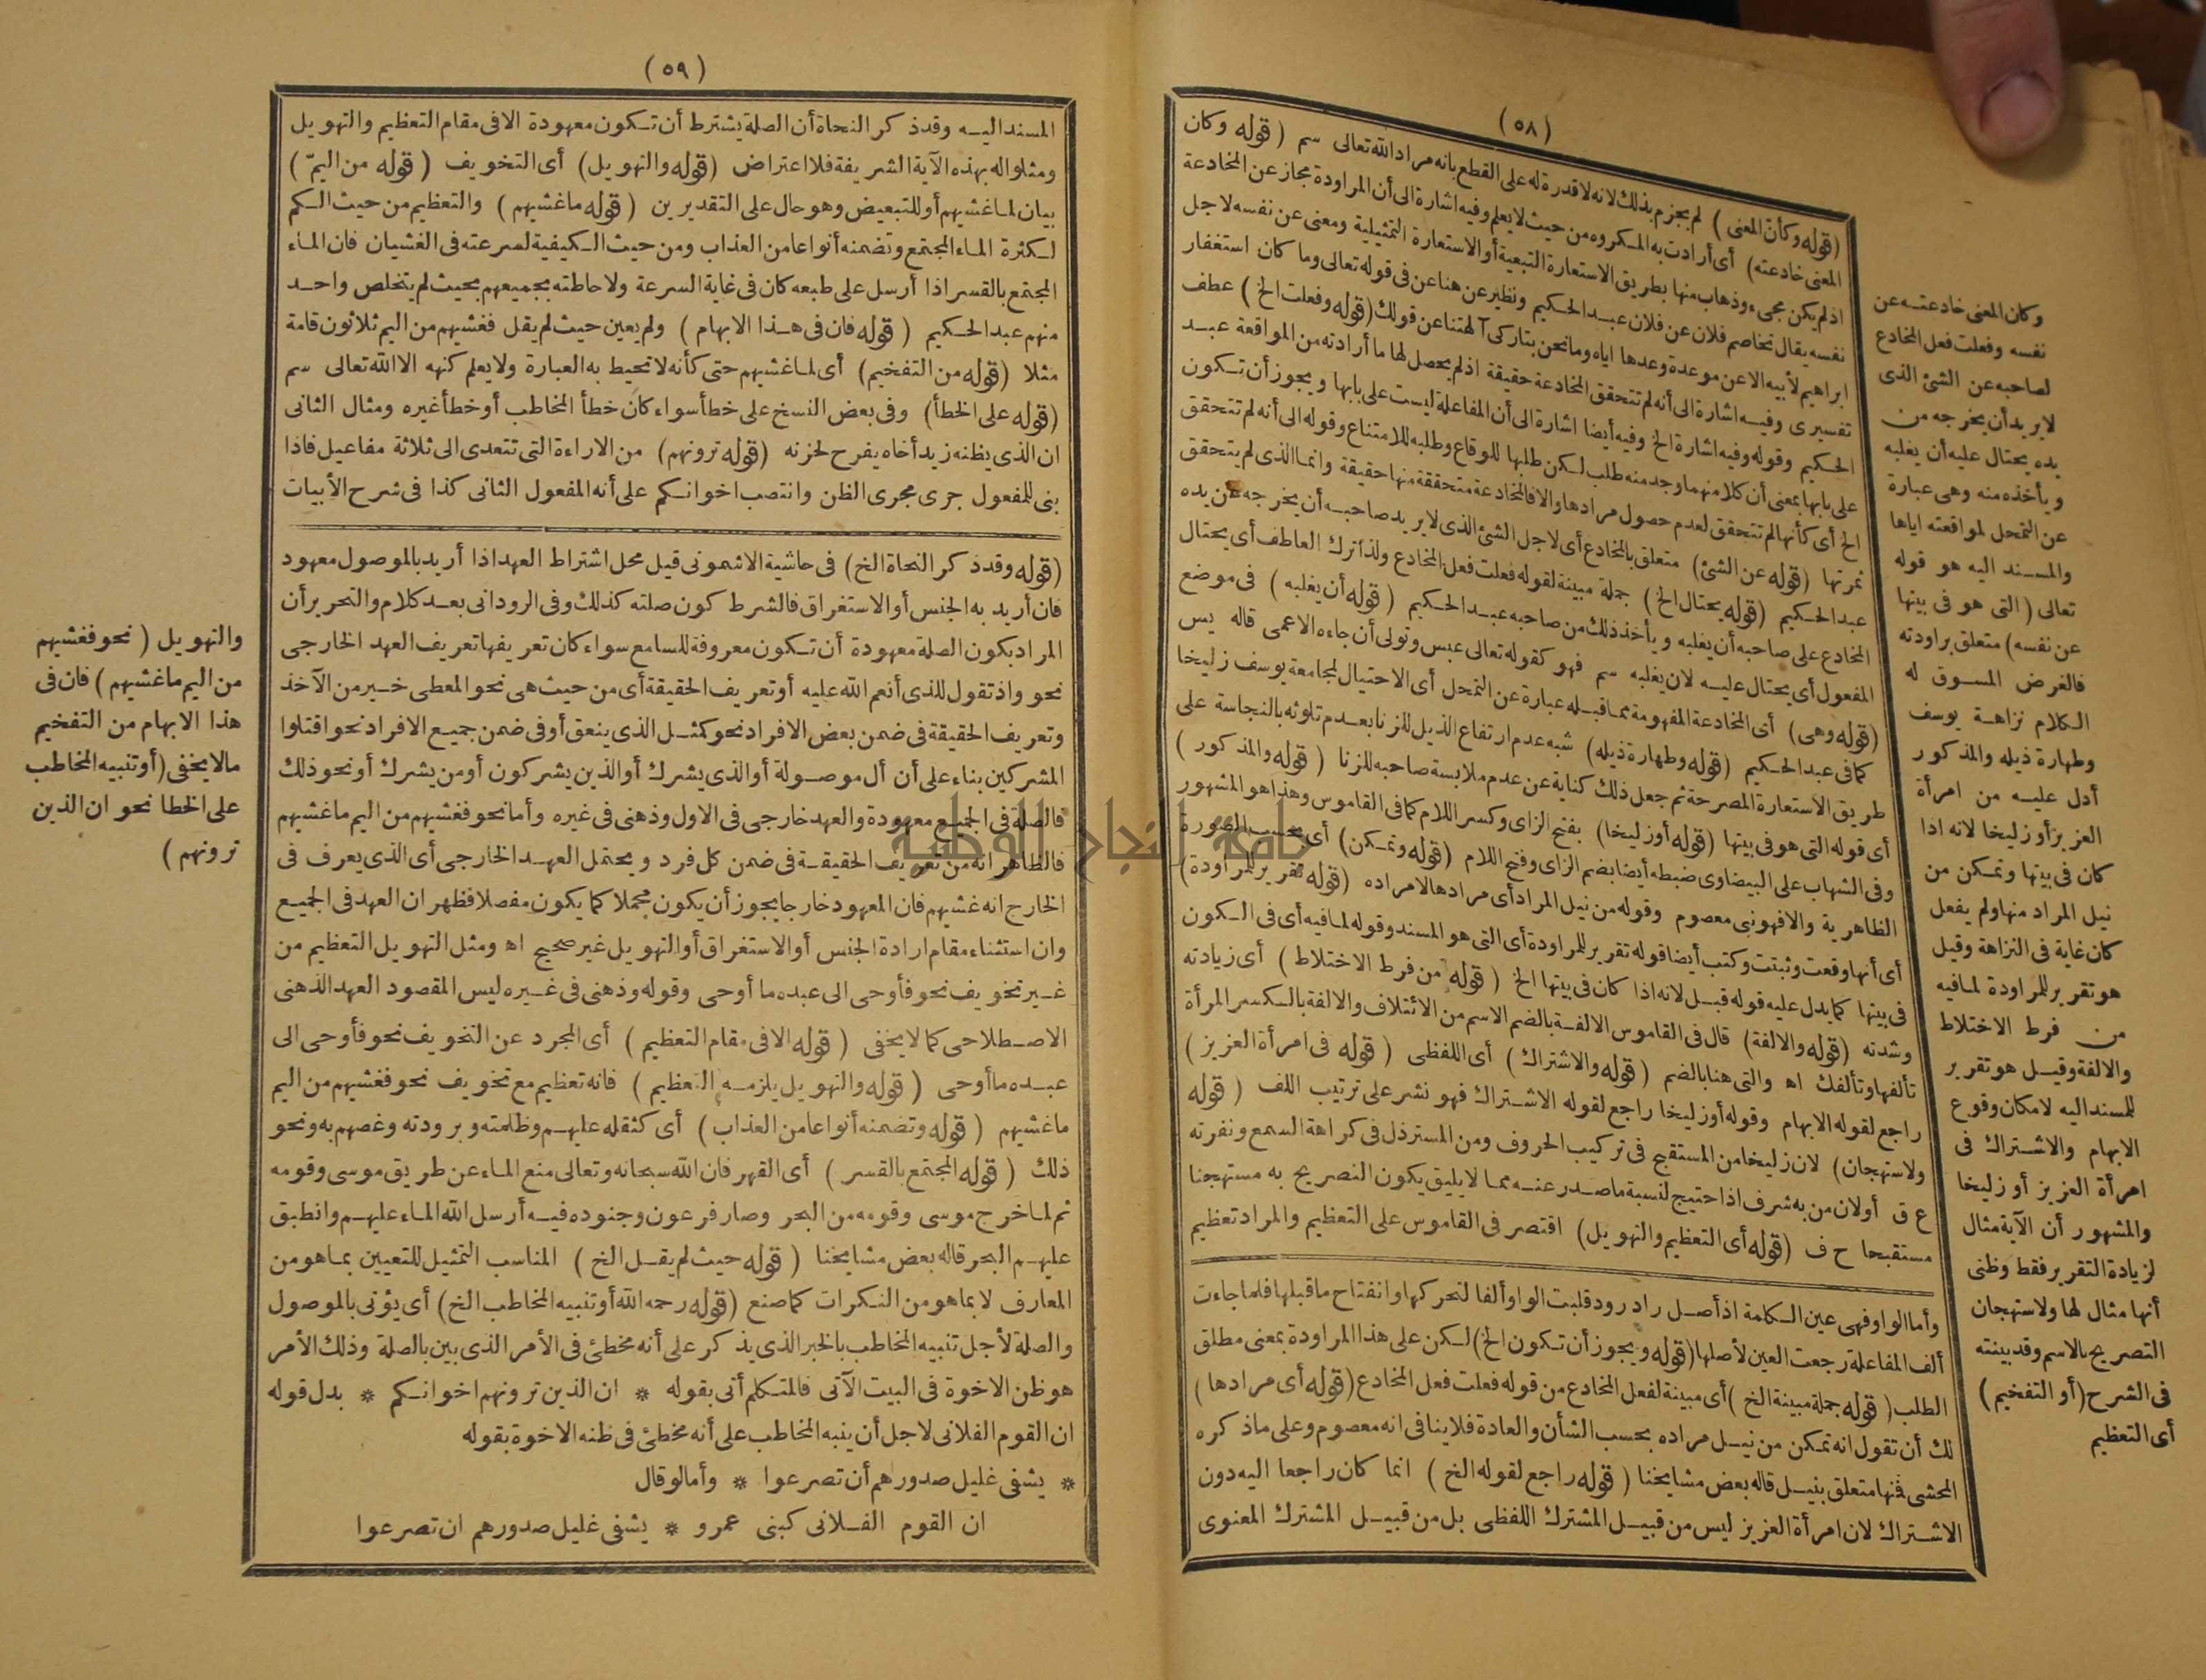 (٥٨)
(قوله وكأن المعنى) لم يجزم بذلك لانه لا قدرة له على القطع بانه مراد الله تعالى سم (قوله وكان
المعنى خادعته) أى أرادت به المكروه من حيث لا يعلم وفيه اشارة الى أن المراودة مجاز عن المخادعة
اذ لم يكن مجىء وذهاب منها بطريق الاستعارة التبعية أو الاستعارة التمثيلية ومعنى عن نفسه لاجل
نفسه يقال تخاصم فلان عن فلان عبد الحكيم ونظير عن هنا عن فى قوله تعالى وما كان استغفار
ابراهيم لأبيه الا عن موعدة وعدها اياه وما نحن بتاركى آلهتنا عن قولك (قوله وفعلت الخ) عطف
تفسيرى وفيه اشارة الى أنه لم تتحقق المخادعة حقيقة اذ لم يحصل لها ما أرادته من المواقعة عبد
الحكيم وقوله وفيه اشارة الخ وفيه أيضا اشارة الى أن المفاعلة ليست على بابها ويجوز أن تكون
على بابها بمعنى أن كلا منهما وجد منه طلب لكن طلبها للوقاع وطلبه للامتناع وقوله الى أنه لم تتحقق
الخ أى كأنها لم تتحقق لعدم حصول مرادها والا فالمخادعة متحققة منها حقيقة وانما الذى لم يتحقق
ثمرتها (قوله عن الشئ) متعلق بالمخادع أى لاجل الشئ الذى لا يريد صاحبه أن يخرجه عن يده
عبد الحكيم (قوله يحتال الخ) جملة مبينة لقوله فعلت فعل المخادع ولذا ترك العاطف أى يحتال
المخادع على صاحبه أن يغلبه ويأخذ ذلك من صاحبه عبد الحكيم (قوله أن يغلبه) فى موضع
المفعول أى يحتال عليه لان يغلبه سم فهو كقوله تعالى عبس وتولى أن جاءه الاعمى قاله يس
(قوله وهى) أى المخادعة المفهومة مما قبله عبارة عن التمحل أى الاحتيال لمجامعة يوسف زليخا
كما فى عبد الحكيم (قوله وطهارة ذيله) شبه عدم ارتفاع الذيل للزنا بعدم تلوثه بالنجاسة على
طريق الاستعارة المصرحة ثم جعل ذلك كناية عن عدم ملابسة صاحبه للزنا (قوله والمذكور)
أى قوله التى هو فى بيتها (قوله أو زليخا) بفتح الزاى وكسر اللام كما فى القاموس وهذا هو المشهور
وفى الشهاب على البيضاوى ضبطه أيضا بضم الزاى وفتح اللام (قوله وتمكن) أى بحسب الصورة
الظاهرية والا فهو نبى معصوم وقوله من نيل المراد أى مرادها لا مراده (قوله تقرير للمراودة)
أى أنها وقعت وثبتت وكتب أيضا قوله تقرير للمراودة أى التى هو المسند وقوله لما فيه أى فى الكون
فى بيتها كما يدل عليه قوله قبل لانه اذا كان فى بيتها الخ (قوله من فرط الاختلاط) أى زيادته
وشدته (قوله والالفة) قال فى القاموس الالفة بالضم الاسم من الائتلاف والالفة بالكسر المرأة
تألفها وتألفك اه والتى هنا بالضم (قوله والاشتراك) أى اللفظى (قوله فى امرأة العزيز)
راجع لقوله الابهام وقوله أو زليخا راجع لقوله الاشتراك فهو نشر على ترتيب اللف (قوله
ولاستهجان) لان زليخا من المستقبح فى تركيب الحروف ومن المسترذل فى كراهة السمع ونفرته
ع ق أو لان من به شرف اذا احتيج لنسبة ما صدر عنه مما لا يليق يكون التصريح به مستهجنا
مستقبحا ح ف (قوله أى التعظيم والتهويل) اقتصر فى القاموس على التعظيم والمراد تعظيم
وأما الواو فهى عين الكلمة اذ أصل راد رود قلبت الواو ألفا لتحركها وانفتاح ما قبلها فلما جاءت
ألف المفاعلة رجعت العين لأصلها (قوله ويجوز أن تكون الخ) لكن على هذا المراودة بمعنى مطلق
الطلب (قوله جملة مبينة الخ) أى مبينة لفعل المخادع من قوله فعلت فعل المخادع (قوله أى مرادها)
لك أن تقول انه تمكن من نيل مراده بحسب الشأن والعادة فلا ينافى انه معصوم وعلى ما ذكره
المحشى فمنها متعلق بنيل قاله بعض مشايخنا (قوله راجع لقوله الخ) انما كان راجعا اليه دون
الاشتراك لان امرأة العزيز ليس من قبيل المشترك اللفظى بل من قبيل المشترك المعنوى
وكان المعنى خادعته عن
نفسه وفعلت فعل المخادع
لصاحبه عن الشئ الذى
لا يريد أن يخرجه من
يده يحتال عليه أن يغلبه
ويأخذه منه وهى عبارة
عن التمحل لمواقعته اياها
والمسند اليه هو قوله
تعالى (التى هو فى بيتها
عن نفسه) متعلق براودته
فالغرض المسوق له
الكلام نزاهة يوسف
وطهارة ذيله والمذكور
أدل عليه من امرأة
العزيز أو زليخا لانه اذا
كان فى بيتها وتمكن من
نيل المراد منها ولم يفعل
كان غاية فى النزاهة وقيل
هو تقرير للمراودة لما فيه
من فرط الاختلاط
والالفة وقيل هو تقرير
للمسند اليه لامكان وقوع
الابهام والاشتراك فى
امرأة العزيز أو زليخا
والمشهور أن الآية مثال
لزيادة التقرير فقط وظنى
أنها مثال لها ولاستهجان
التصريح بالاسم وقد بينته
فى الشرح (أو التفخيم)
أى التعظيم
(٥٩)
المسند اليه وقد ذكر النحاة أن الصلة يشترط أن تكون معهودة الا فى مقام التعظيم والتهويل
ومثلوا له بهذه الآية الشريفة فلا اعتراض (قوله والتهويل) أى التخويف (قوله من اليمّ)
بيان لما غشيهم أو للتبعيض وهو حال على التقديرين (قوله ما غشيهم) والتعظيم من حيث الكم
لكثرة الماء المجتمع وتضمنه أنواعا من العذاب ومن حيث الكيفية لسرعته فى الغشيان فان الماء
المجتمع بالقسر اذا أرسل على طبعه كان فى غاية السرعة ولاحاطته بجميعهم بحيث لم يتخلص واحد
منهم عبد الحكيم (قوله فان فى هذا الابهام) ولم يعين حيث لم يقل فغشيهم من اليم ثلاثون قامة
مثلا (قوله من التفخيم) أى لما غشيهم حتى كأنه لا تحيط به العبارة ولا يعلم كنهه الا الله تعالى سم
(قوله على الخطأ) وفى بعض النسخ على خطأ سواء كان خطأ المخاطب أو خطأ غيره ومثال الثانى
ان الذى يظنه زيد أخاه يفرح لحزنه (قوله ترونهم) من الاراءة التى تتعدى الى ثلاثة مفاعيل فاذا
بنى للمفعول جرى مجرى الظن وانتصب اخوانكم على أنه المفعول الثانى كذا فى شرح الأبيات
(قوله وقد ذكر النحاة الخ) فى حاشية الاشمونى قيل محل اشتراط العهد اذا أريد بالموصول معهود
فان أريد به الجنس أو الاستغراق فالشرط كون صلته كذلك وفى الرودانى بعد كلام والتحرير أن
المراد بكون الصلة معهودة أن تكون معروفة للسامع سواء كان تعريفها تعريف العهد الخارجى
نحو واذ تقول للذى أنعم الله عليه أو تعريف الحقيقة أى من حيث هى نحو المعطى خير من الآخذ
وتعريف الحقيقة فى ضمن بعض الافراد نحو كمثل الذى ينعق أو فى ضمن جميع الافراد نحو اقتلوا
المشركين بناء على أن أل موصولة أو الذى يشرك أو الذين يشركون أو من يشرك أو نحو ذلك
فالصلة فى الجميع معهودة والعهد خارجى فى الاول وذهنى فى غيره وأما نحو فغشيهم من اليم ما غشيهم
فالظاهر انه من تعريف الحقيقة فى ضمن كل فرد ويحتمل العهد الخارجى أى الذى يعرف فى
الخارج انه غشيهم فان المعهود خارجا يجوز أن يكون مجملا كما يكون مفصلا فظهر ان العهد فى الجميع
وان استثناء مقام ارادة الجنس أو الاستغراق أو التهويل غير صحيح اه ومثل التهويل التعظيم من
غير تخويف نحو فأوحى الى عبده ما أوحى وقوله وذهنى فى غيره ليس المقصود العهد الذهنى
الاصطلاحى كما لا يخفى (قوله الا فى مقام التعظيم) أى المجرد عن التخويف نحو فأوحى الى
عبده ما أوحى (قوله والتهويل يلزمه التعظيم) فانه تعظيم مع تخويف نحو فغشيهم من اليم
ما غشيهم (قوله وتضمنه أنواعا من العذاب) أى كثقله عليهم وظلمته وبرودته وغصهم به ونحو
ذلك (قوله المجتمع بالقسر) أى القهر فان الله سبحانه وتعالى منع الماء عن طريق موسى وقومه
ثم لما خرج موسى وقومه من البحر وصار فرعون وجنوده فيه أرسل الله الماء عليهم وانطبق
عليهم البحر قاله بعض مشايخنا (قوله حيث لم يقل الخ) المناسب التمثيل للتعيين بما هو من
المعارف لا بما هو من النكرات كما صنع (قوله رحمه الله أو تنبيه المخاطب الخ) أى يؤتى بالموصول
والصلة لأجل تنبيه المخاطب بالخبر الذى يذكر على أنه مخطئ فى الأمر الذى بين بالصلة وذلك الأمر
هو ظن الاخوة فى البيت الآتى فالمتكلم أتى بقوله * ان الذين ترونهم اخوانكم * بدل قوله
ان القوم الفلانى لاجل أن ينبه المخاطب على أنه مخطئ فى ظنه الاخوة بقوله
* يشفى غليل صدورهم أن تصرعوا * وأما لو قال
ان القوم الفلانى كبنى عمرو * يشفى غليل صدورهم ان تصرعوا
والتهويل (نحو فغشيهم
من اليم ما غشيهم) فان فى
هذا الابهام من التفخيم
ما لا يخفى (أو تنبيه المخاطب
على الخطا نحو ان الذين
ترونهم)
جامعة النجاح الوطنية